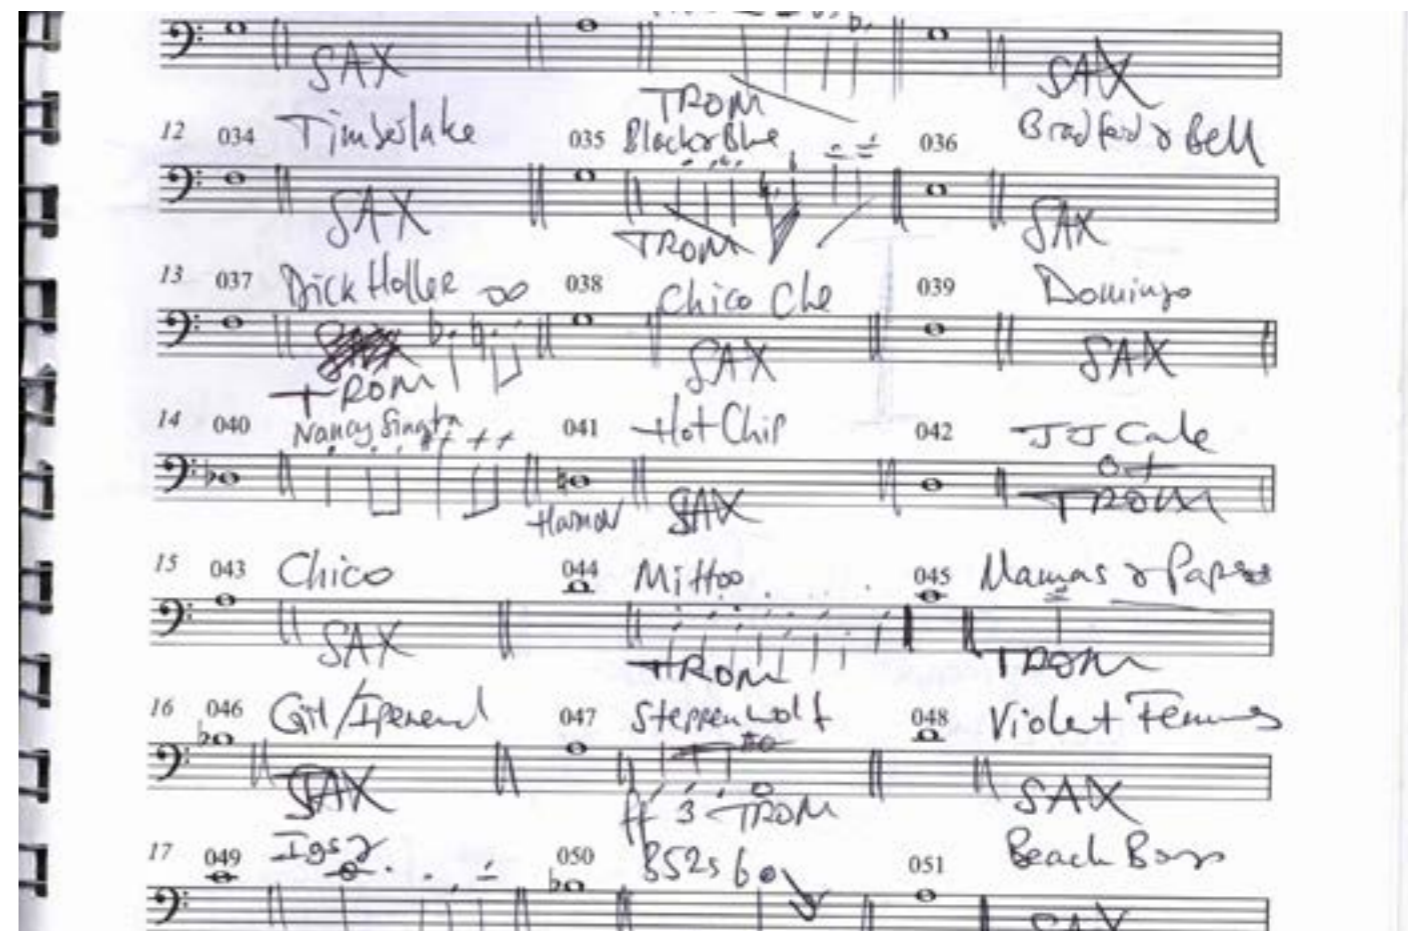 SAX SAX
TROM
12 034 Timberlake 035 Black & Blue 036 Bradford & Bell
SAX TROM SAX
13 037 Dick Holler 038 Chico Che 039 Domingo
SAX SAX
TROM
14 040 Nancy Sinatra 041 Hot Chip 042 JJ Cale
SAX TROM
15 043 Chico 044 Mittoo 045 Mamas & Papas
SAX TROM TROM
16 046 Gil/ 047 Steppenwolf 048 Violent Femmes
SAX ff 3 TROM SAX
17 049 Iggy 050 B52s 051 Beach Boys
SAX